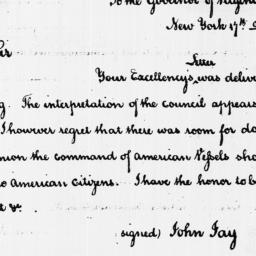 To the Governor of Virginia
New York 17th
Sir
Letter
Your Excellency's was deliv
g. The interpretation of the council appears
I however regret that there was room for do
nion the command of american Vessels sho
to American Citizens. I have the honor to b
t &c.
signed) John Jay